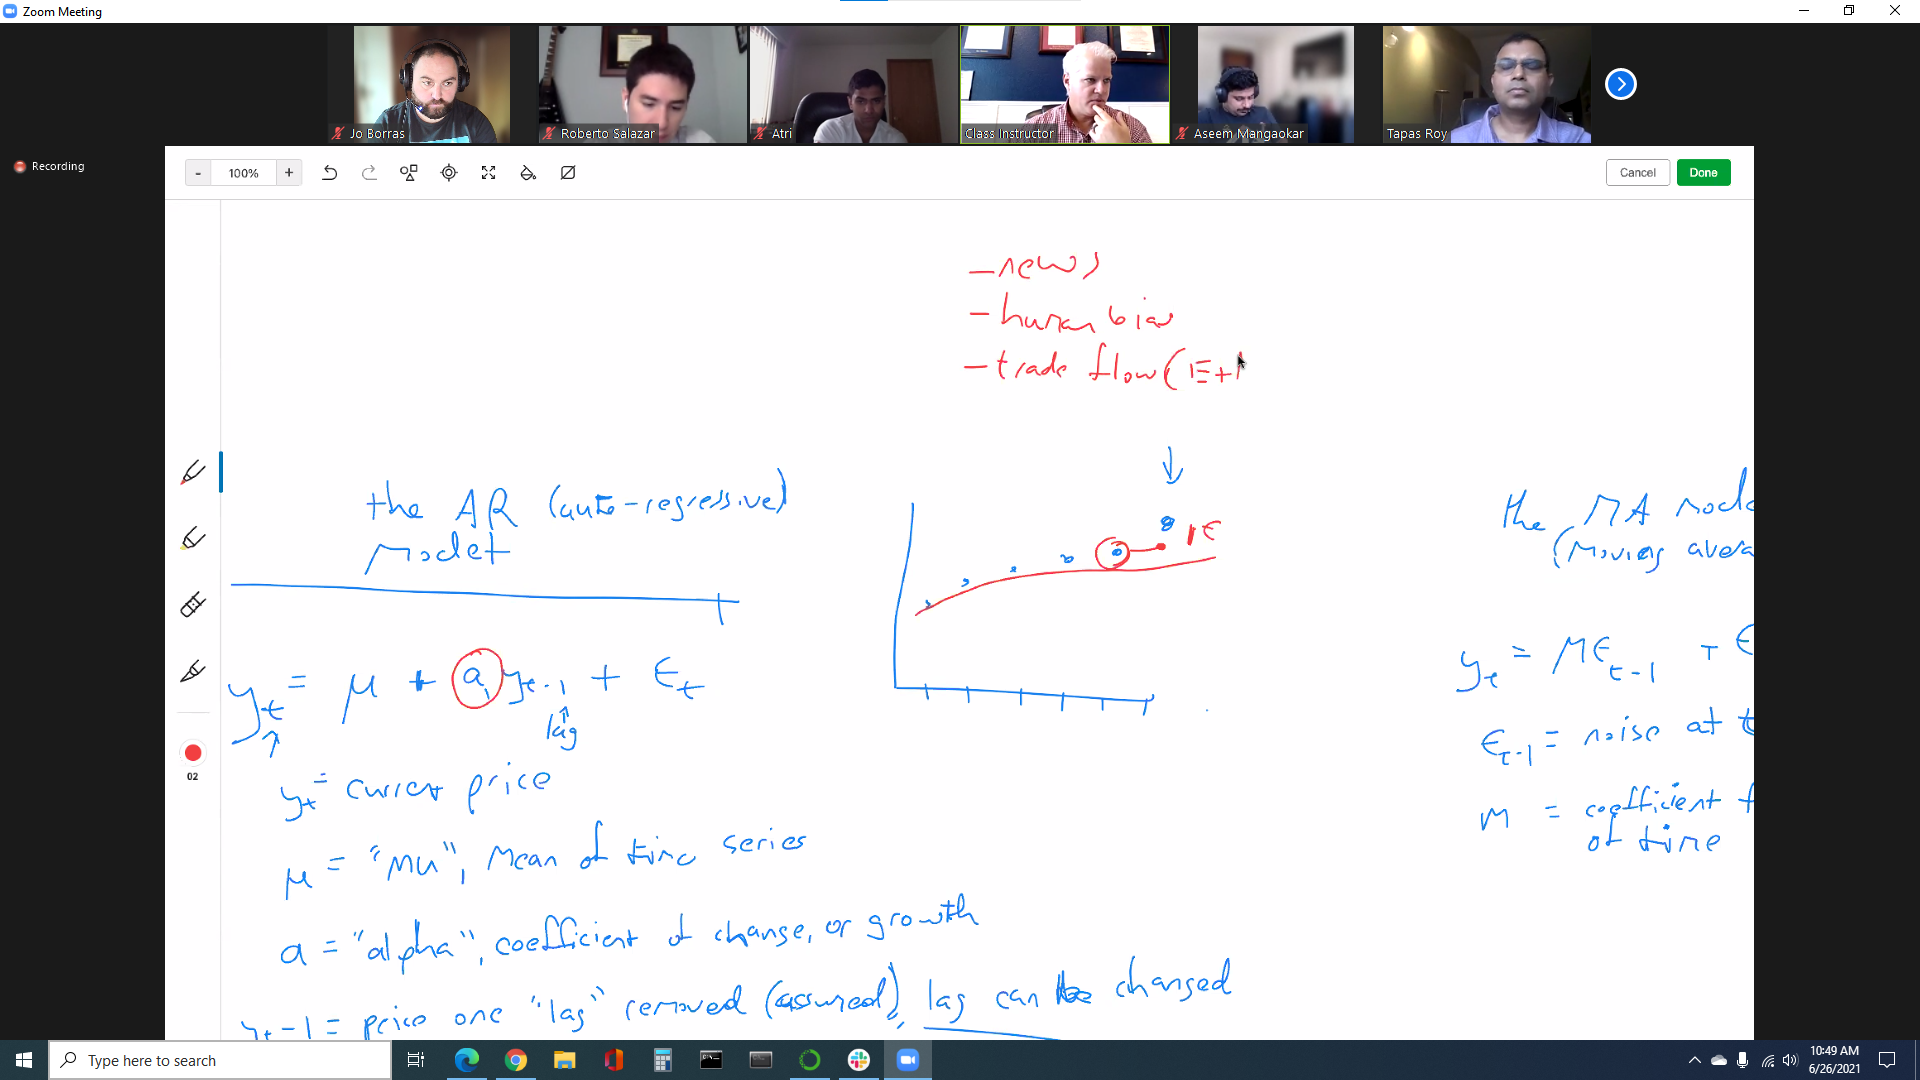 Zoom Meeting
Jo Borras
Roberto Salazar
Atri
Class Instructor
Aseem Mangaokar
Tapas Roy
Recording
- 100% +
Cancel
Done
- news
- human bias
- trade flow (E+
the AR (auto-regressive)
model
ϵ
the MA mode
(moving avera
y_t = μ + a_1 y_t-1 + ϵ_t
lag
y_t = current price
μ = "mu", mean of time series
a = "alpha", coefficient of change, or growth
y_t-1 = price one "lag" removed (assumed), lag can be changed
y_t = Mϵ_t-1 + ϵ
ϵ_t-1 = noise at t
M = coefficient f
of time
02
Type here to search
10:49 AM
6/26/2021